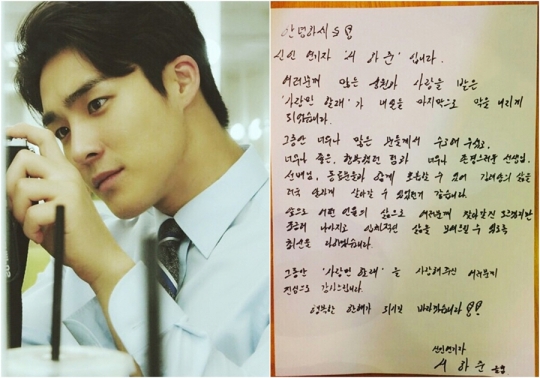 안녕하세요
신인 연기자 '서 하 준' 입니다.
여러분께 많은 성원과 사랑을 받은
'사랑만 할래' 가 내일을 마지막으로 막을 내리게
되었습니다.
그동안 너무나 많은 분들께서 수고해 주셨고,
너무나 좋은, 행복했던 팀과 너무나 존경스러운 선생님,
선배님, 동료분들과 함께 호흡할 수 있어 김태양의 삶을
더욱 살아갈 수 있었던거 같습니다.
앞으로 어떤 인물의 삶으로 여러분께 찾아갈진 모르겠지만
나아지고 삶을 보여드릴 수 있도록
최선을 다하겠습니다.
그동안 '사랑만 할래' 를 사랑해주신 여러분께
진심으로 감사드립니다.
행복한 한해가 되시길 바라겠습니다
신인연기자
서 하 준